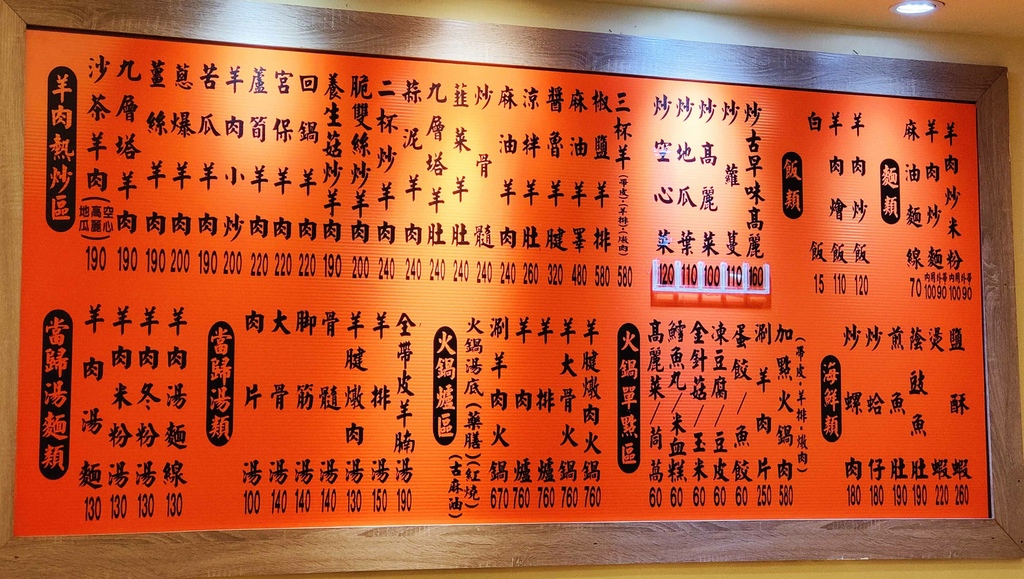 羊肉熱炒區
沙茶羊肉(空心 高麗 地瓜)190
九層塔羊肉190
薑絲羊肉190
蔥爆羊肉200
苦瓜羊肉190
羊肉小炒200
蘆筍羊肉220
宮保羊肉220
回鍋羊肉220
養生菇炒羊肉190
脆雙絲炒羊肉200
二杯炒羊肉240
蒜泥羊肉240
九層塔羊肚240
韮菜羊肚240
炒骨髓240
麻油羊肉240
涼拌羊肚260
醬魯羊腱320
麻油羊睪480
椒鹽羊排580
三杯羊(帶皮.羊排.燉肉)580
炒空心菜120
炒地瓜葉110
炒高麗菜100
炒蘿蔓110
炒古早味高麗160
飯類
白飯15
羊肉燴飯110
羊肉炒飯120
麵類
麻油麵線70
羊肉炒麵 內用100 外帶90
羊肉炒米粉 內用100 外帶90
當歸湯麵類
羊肉湯麵130
羊肉米粉湯130
羊肉冬粉湯130
羊肉湯麵線130
當歸湯
肉片湯100
大骨湯140
脚筋湯140
骨髓湯140
羊腱燉肉湯130
羊排湯150
全帶皮羊腩湯190
火鍋爐區
火鍋湯底(藥膳)(紅燒)(古麻油)
涮羊肉火鍋670
羊肉爐760
羊排爐760
羊大骨火鍋760
羊腱燉肉火鍋760
火鍋單點區
高麗菜/茼萵60
鱈魚丸/米血糕60
金針菇/玉米60
凍豆腐/豆皮60
蛋餃/魚餃60
涮羊肉片250
加點火鍋肉(帶皮.羊排.燉肉)580
海鮮類
炒螺肉180
炒蛤仔180
煎魚肚190
蔭豉魚肚190
燙蝦220
鹽酥蝦260